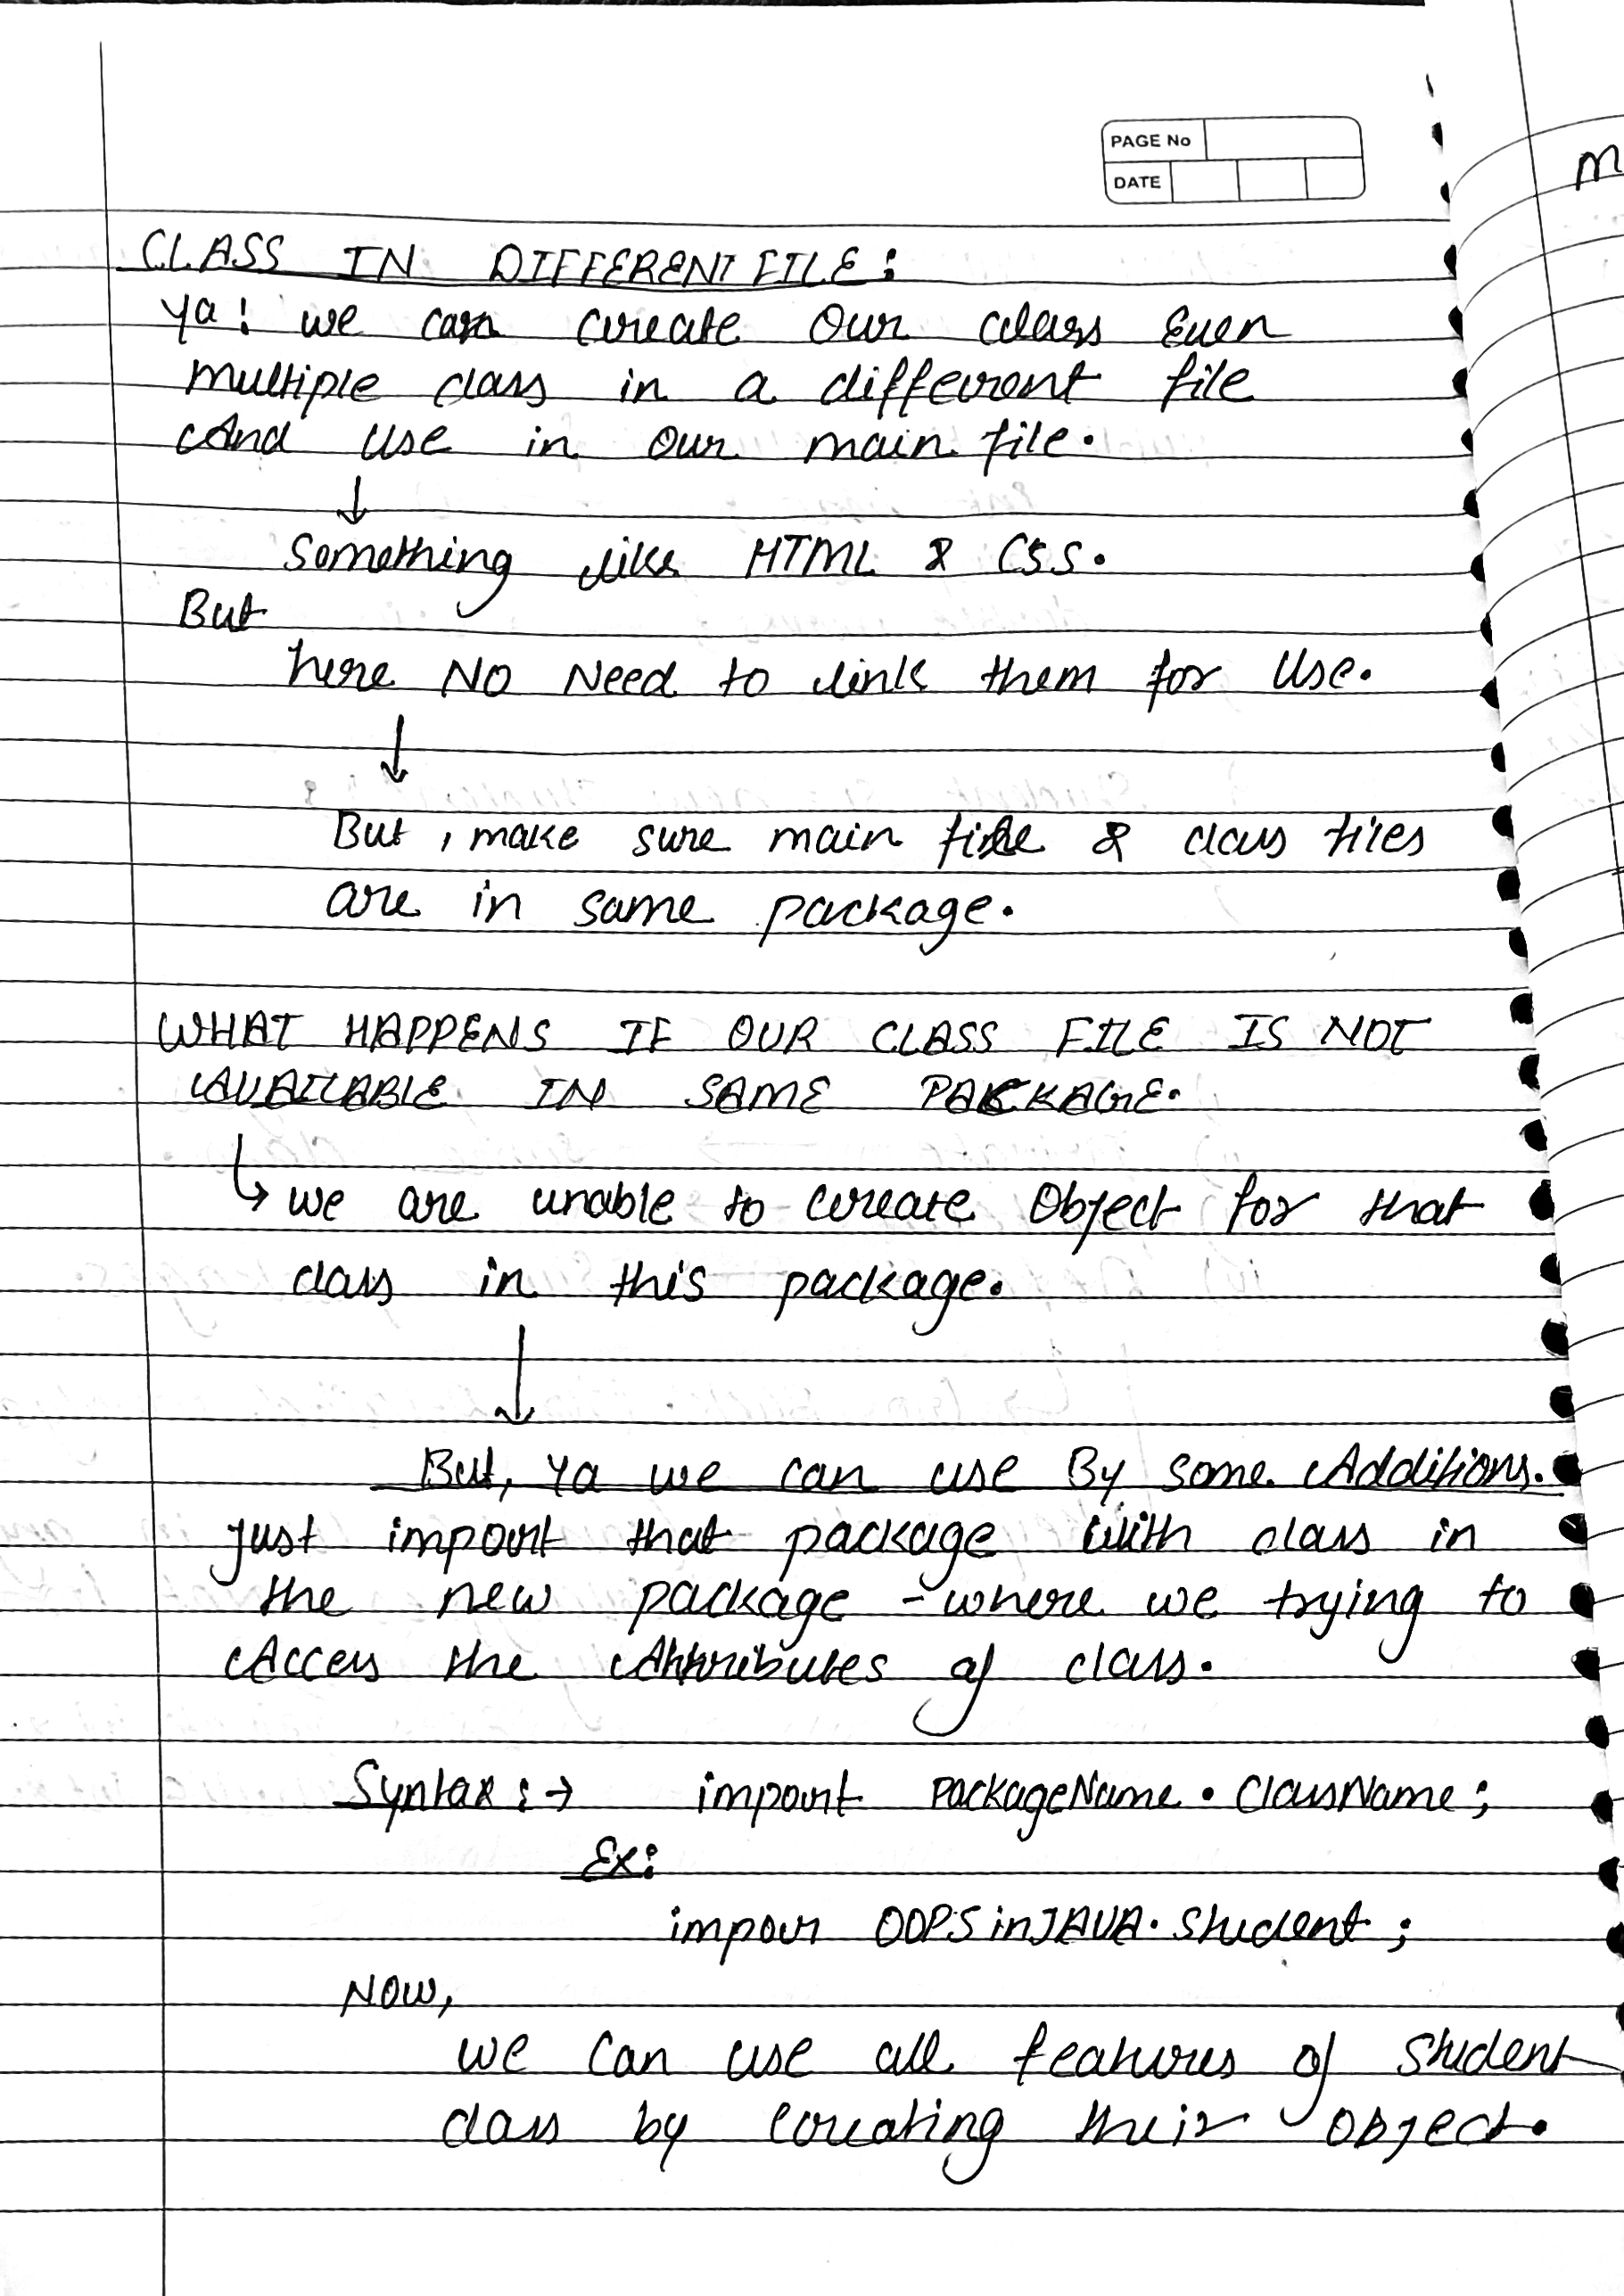 PAGE No
DATE
M
CLASS IN DIFFERENT FILE:
Ya! we can create our class Even
multiple class in a different file
And Use in our main file.
↓
Something like HTML & CSS.
But
here NO Need to link them for Use.
↓
But, make sure main file & class files
are in same package.
WHAT HAPPENS IF OUR CLASS FILE IS NOT
AVAILABLE IN SAME PACKAGE.
↳ we are unable to create Object for that
class in this package.
↓
But, Ya we can use By some Additions.
Just import that package with class in
the new package - where we trying to
Access the Attributes of class.
Syntax :→ import PackageName.ClassName;
Ex:
impor OOPSinJAVA.Student;
NOW,
we can use all features of Student
class by creating their object.